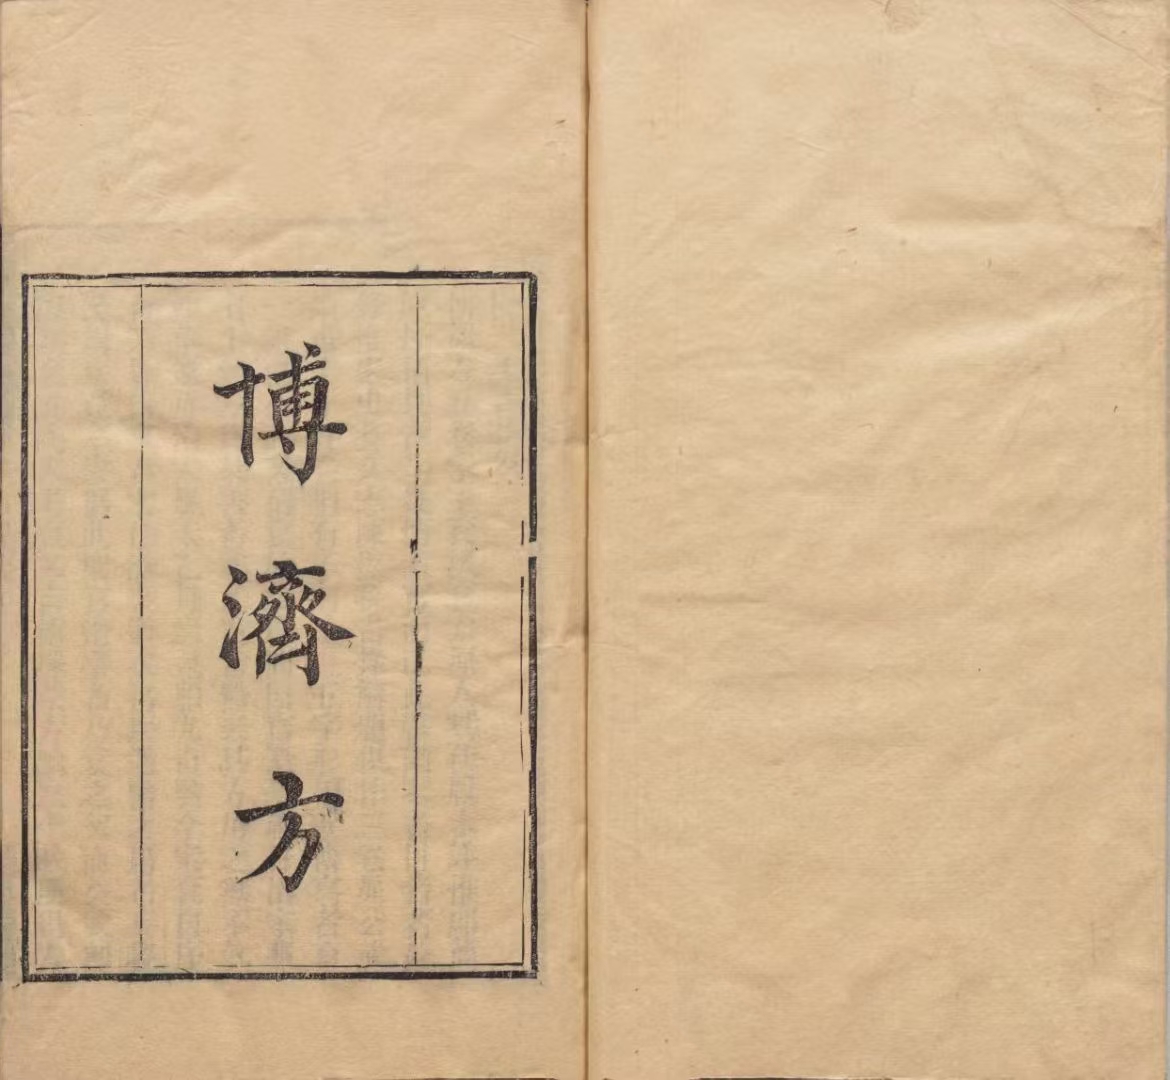 博濟方